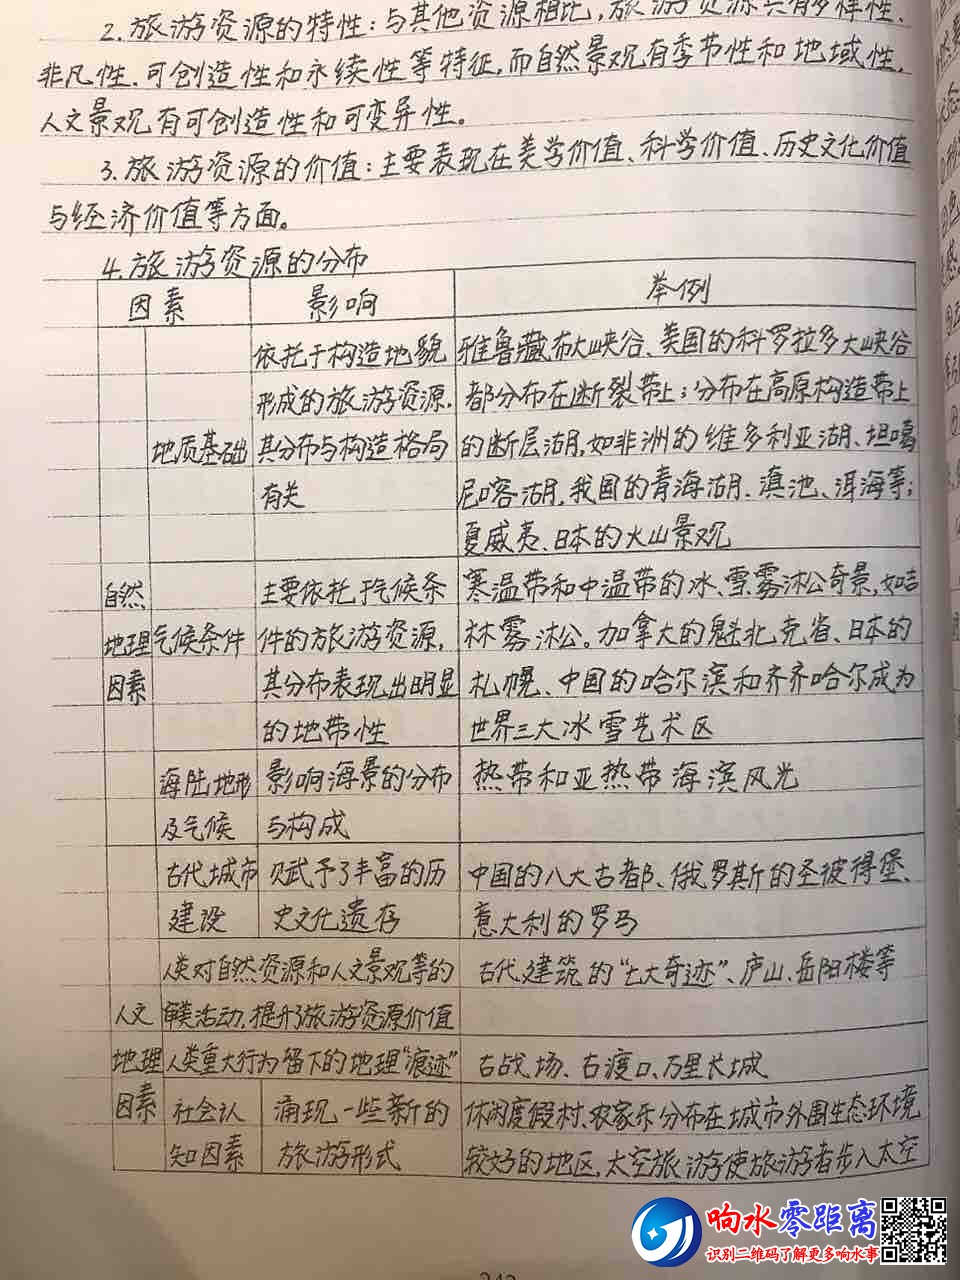 2.旅游资源的特性:与其他资源相比,旅游资源具有多样性、
非凡性、可创造性和永续性等特征,而自然景观有季节性和地域性,
人文景观有可创造性和可变异性。
3.旅游资源的价值:主要表现在美学价值、科学价值、历史文化价值
与经济价值等方面。
4.旅游资源的分布
因素 影响 举例
依托于构造地貌 雅鲁藏布大峡谷、美国的科罗拉多大峡谷
形成的旅游资源, 都分布在断裂带上;分布在高原构造带上
地质基础 其分布与构造格局 的断层湖,如非洲的维多利亚湖、坦噶
有关 尼喀湖,我国的青海湖、滇池、洱海等;
夏威夷、日本的火山景观
自然 主要依托于气候条 寒温带和中温带的冰、雪、雾淞公奇景,如吉
地理 气候条件 件的旅游资源, 林雾淞公。加拿大的魁北克省、日本的
因素 其分布表现出明显 札幌、中国的哈尔滨和齐齐哈尔成为
的地带性 世界三大冰雪艺术区
海陆地形 影响海景的分布 热带和亚热带海滨风光
及气候 与构成
古代城市 赋予了丰富的历 中国的八大古都、俄罗斯的圣彼得堡、
建设 史文化遗存 意大利的罗马
人类对自然资源和人文景观等的 古代建筑的“七大奇迹”、庐山、岳阳楼等
人文 审美活动,提升了旅游资源价值
地理 人类重大行为留下的地理“痕迹” 古战场、古渡口、万里长城
因素 社会认 涌现一些新的 休闲度假村、农家乐分布在城市外围生态环境
知因素 旅游形式 较好的地区,太空旅游使旅游者步入太空
响水零距离
识别二维码了解更多响水事